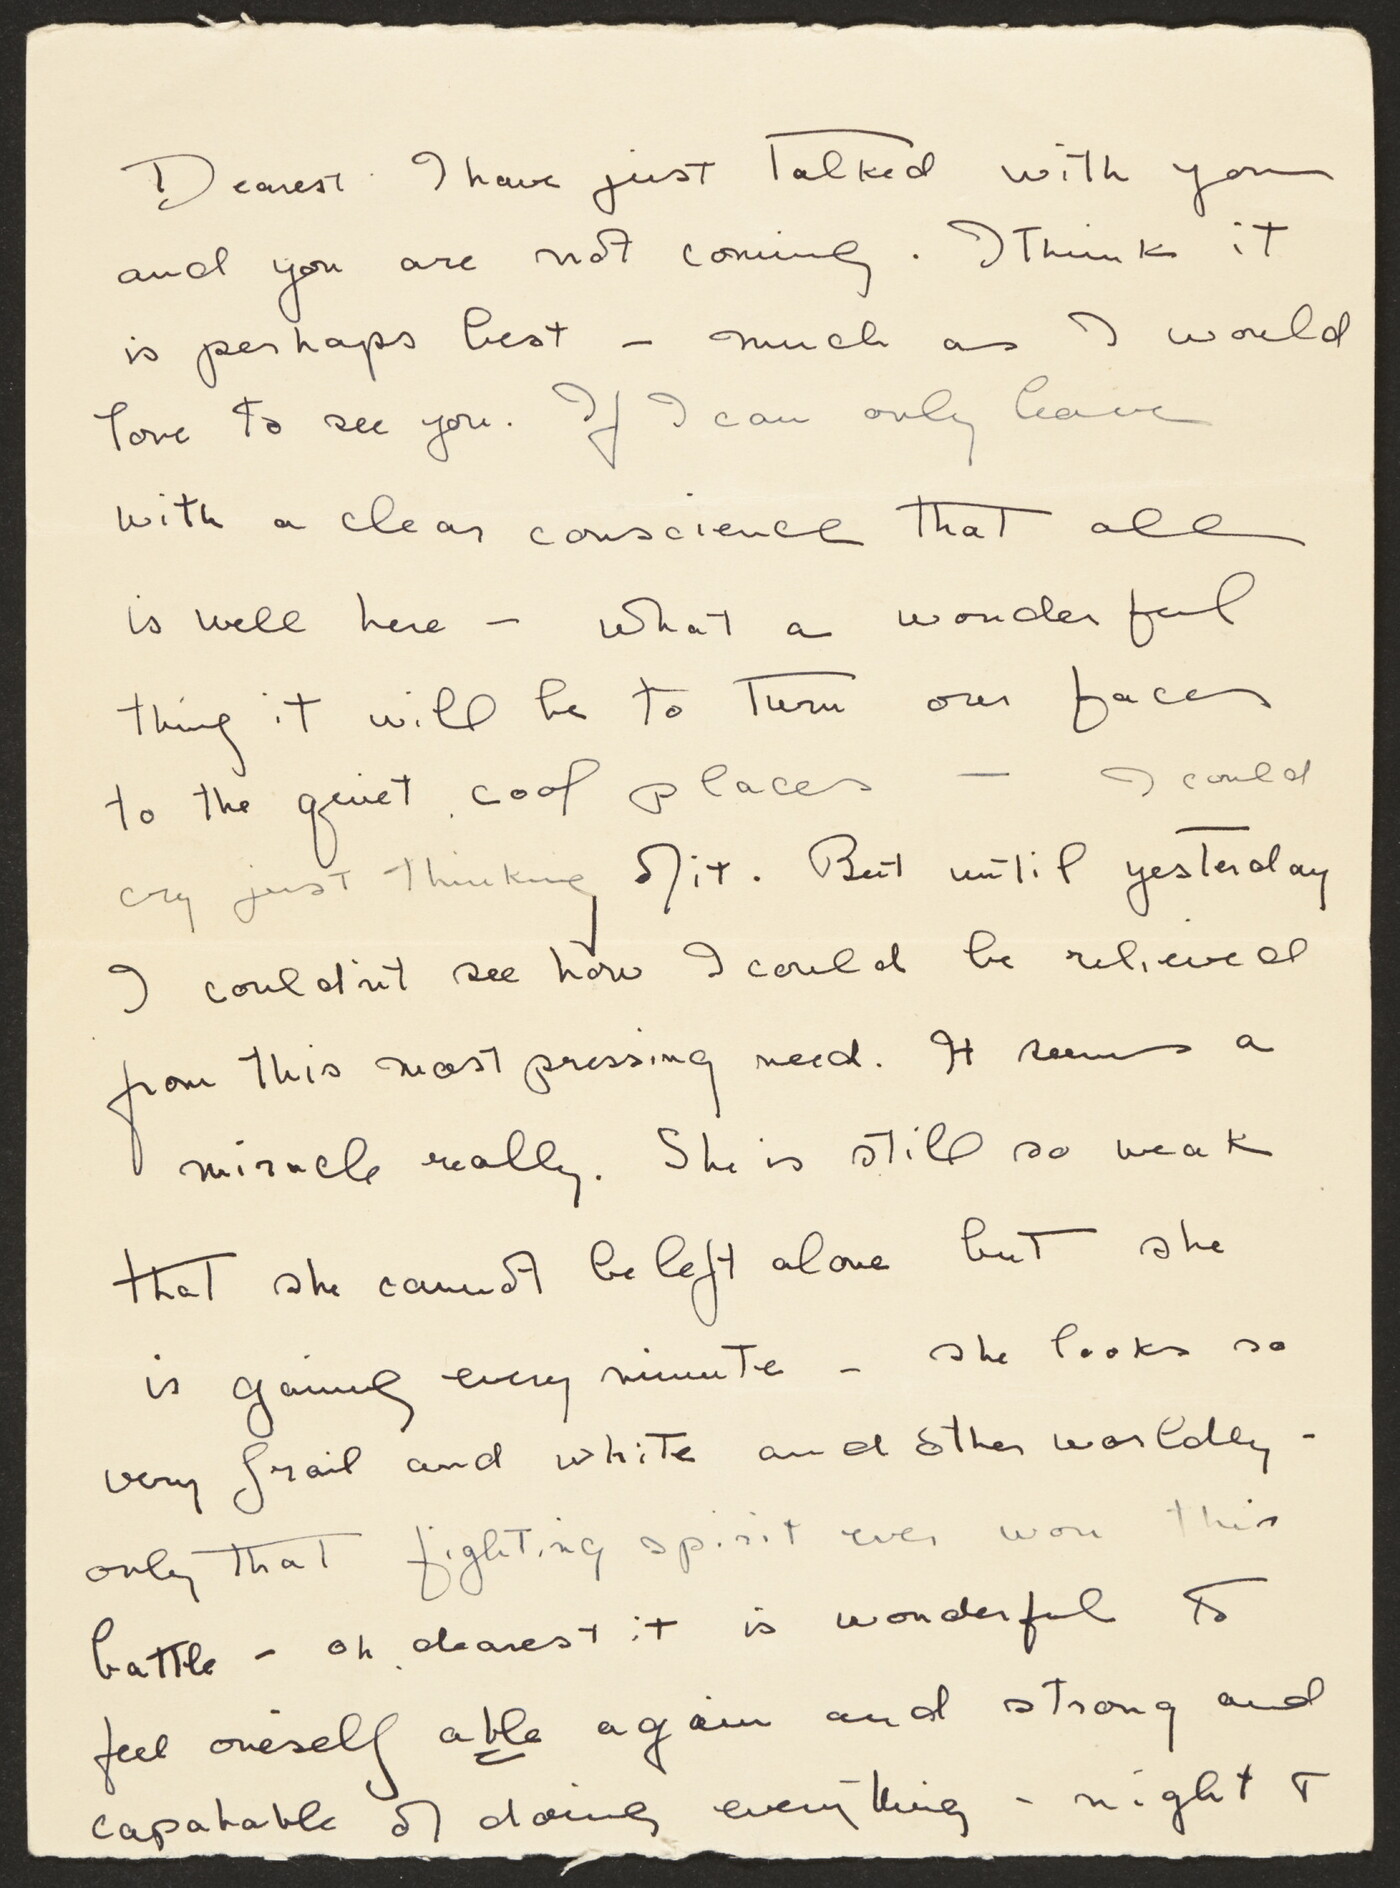 Dearest I have just talked with you
and you are not coming. I think it
is perhaps best – much as I would
love to see you. If I can only leave
with a clear conscience that all
is well here – what a wonderful
thing it will be to turn our faces
to the quiet cool places – I could
cry just thinking of it. But until yesterday
I couldn't see how I could be relieved
from this most pressing need. It seems a
miracle really. She is still so weak
that she cannot be left alone but she
is gaining every minute – she looks so
very frail and white and other worldly –
only that fighting spirit ever won this
battle – oh dearest it is wonderful to
feel oneself able again and strong and
capabable of doing everything – night &